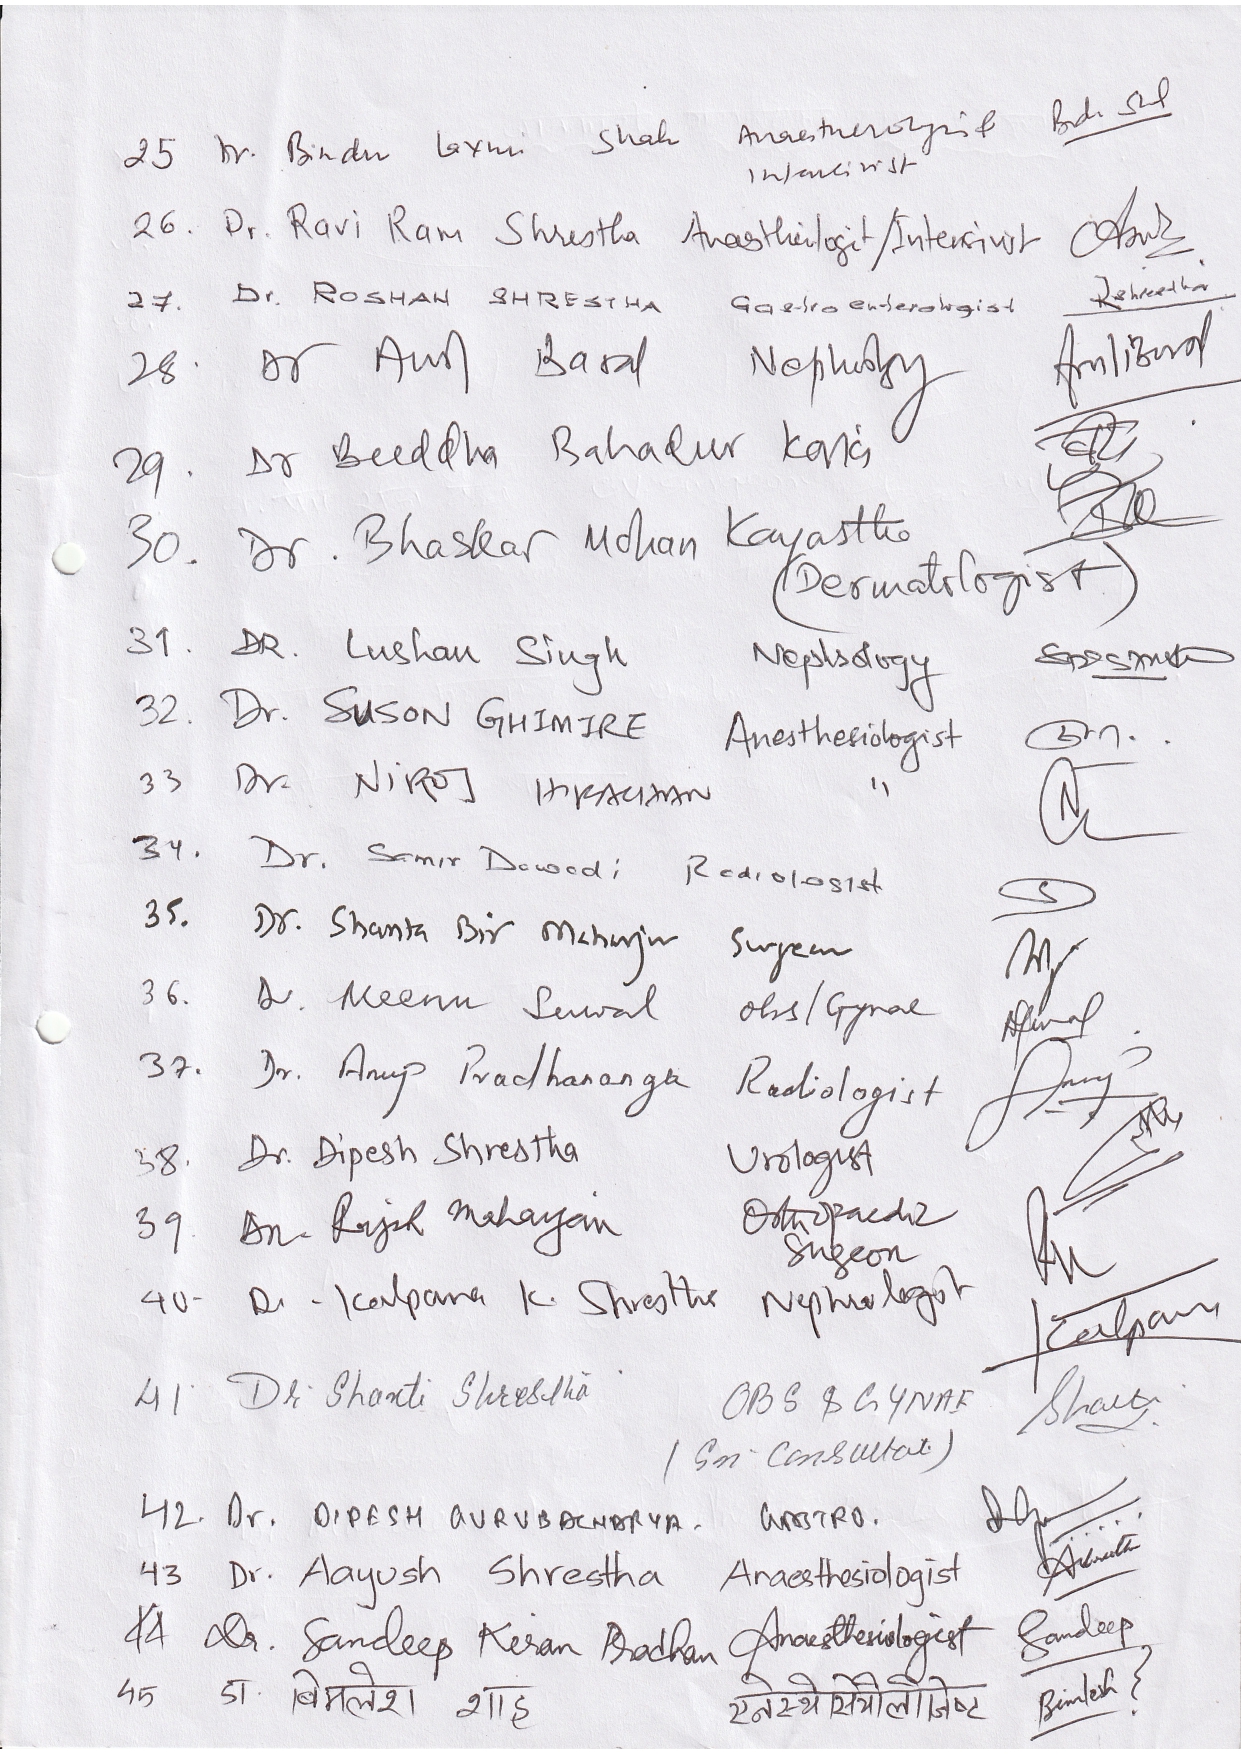 25 Dr. Bindu Laxmi Shah Anaesthesiologist
Intensivist
26. Dr. Ravi Ram Shrestha Anaesthiologist/Intensivist
27. Dr. ROSHAN SHRESTHA Gastroenterologist RShrestha
28. Dr Baral Nephrology
29. Dr Beeddha Bahadur Karki
30. Dr. Bhaskar Mohan Kayastha
(Dermatologist)
31. DR. Lushan Singh Nephrology
32. Dr. SUSON GHIMIRE Anesthesiologist
33 Dr. NIROJ HIRACHAN "
34. Dr. Samir Dawadi Radiologist
35. Dr. Shanta Bir Maharjan Surgeon
36. Dr. Meenu Suwal obs/Gynae
37. Dr. Anup Pradhananga Radiologist
38. Dr. Dipesh Shrestha Urologist
39 Dr. Rajesh Maharjan Orthopaedic
Surgeon
40- Dr - Kalpana K. Shrestha Nephrologist Kalpana
41 Dr. Shanti Shrestha OBS & GYNAE Shanti
(Sn. Consultat)
42. Dr. DIPESH GURUBACHARYA. GASTRO.
43 Dr. Aayush Shrestha Anaesthesiologist
44 Dr. Sandeep Kiran Pradhan Anaesthesiologist Sandeep
45 डा. बिमलेश शाह एनेस्थेसियोलोजिष्ट Bimlesh